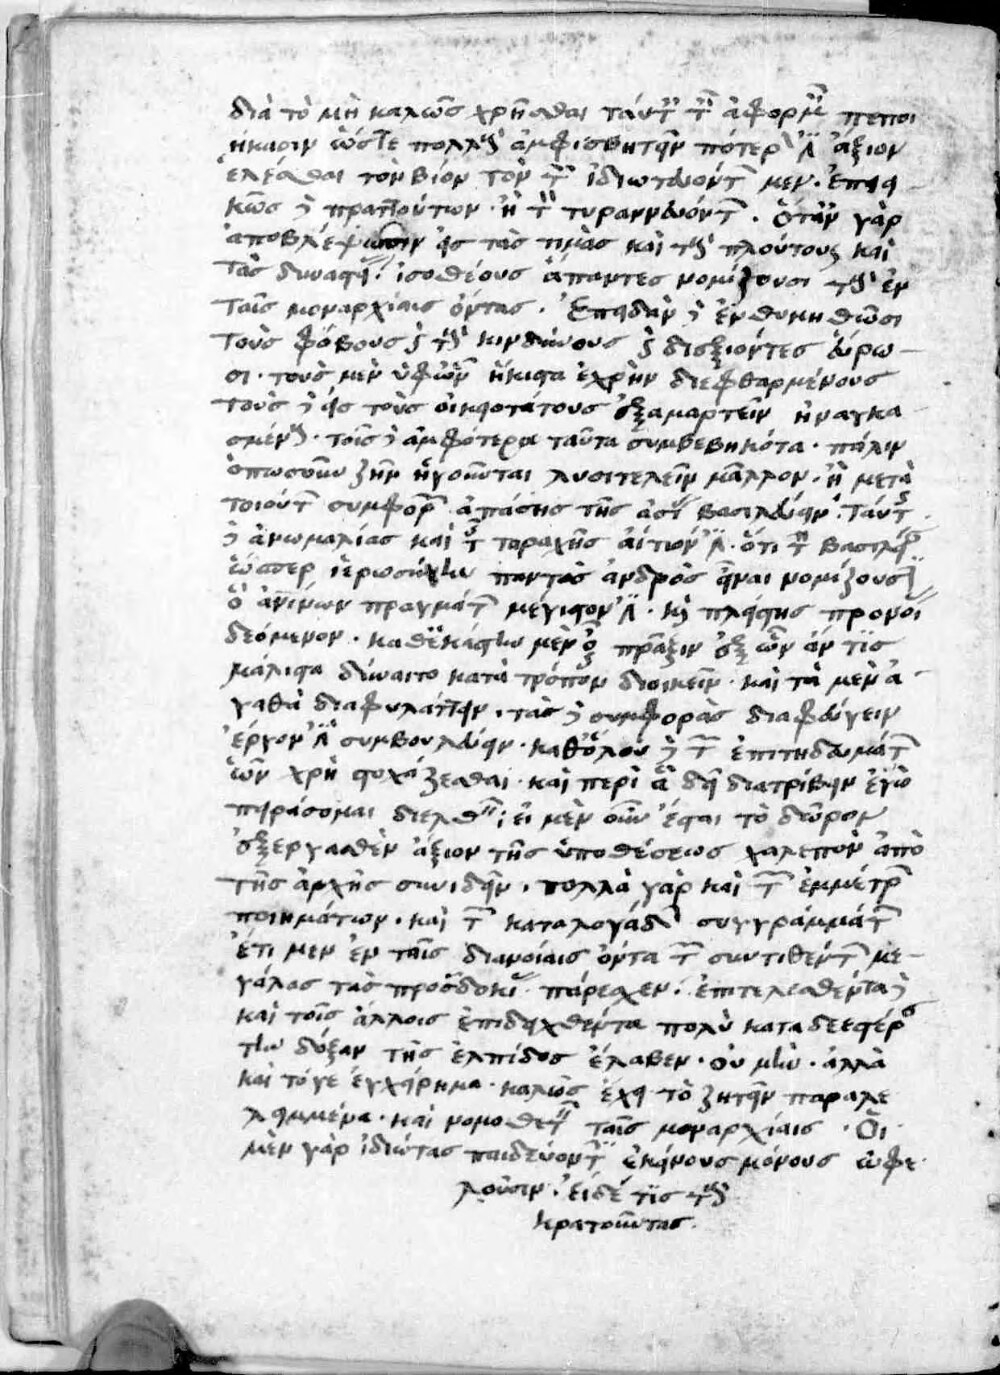 διὰ τὸ μὴ καλῶς χρῆσθαι ταύτ τ ἀφορμ πεποι
ήκασιν ὥστε πολλοὺς ἀμφισβητεῖν πότερ ἐστιν ἄξιον
ἑλέσθαι τὸν βίον τὸν τῶν ἰδιωτευόντων μεν. ἐπιει
κῶς δὲ πραττόντων. ἢ τῶν τυραννευόντων. ὅταν γὰρ
ἀποβλέψωσιν εἰς τὰς τιμὰς καὶ τοὺς πλούτους καὶ
τὰς δυναστεί. ἰσοθέους ἅπαντες νομίζουσι τοὺς ἐν
ταῖς μοναρχίαις ὄντας. ἐπειδὰν δὲ ἐνθυμηθῶσι
τοὺς φόβους καὶ τοὺς κινδύνους καὶ διεξιόντες εὕρω-
σι. τοὺς μὲν ὑφ' ὧν ἥκιστα ἐχρῆν διεφθαρμένους
τοὺς δὲ εἰς τοὺς οἰκειοτάτους ἐξαμαρτεῖν ἠναγκα
σμένους. τοῖς δὲ ἀμφότερα ταῦτα συμβεβηκότα. πάλιν
ὁπωσοῦν ζῆν ἡγοῦνται λυσιτελεῖν μᾶλλον. ἢ μετὰ
τοιούτων συμφορῶν ἁπάσης τῆς ἀσί βασιλεύειν. ταύτης
δὲ ἀνωμαλίας καὶ τῆς ταραχῆς αἴτιόν ἐστιν. ὅτι τὴν βασιλεί
ὥσπερ ἱερωσύνην παντὸς ἀνδρὸς εἶναι νομίζουσιν
ὃ ἀνίνων πραγμάτων μέγιστον ἐστι. καὶ πλείστης προνοί
δεόμενον. καθ' ἑκάστην μὲν οὖν πρᾶξιν ἐξ ὧν ἄν τις
μάλιστα δύναιτο κατὰ τρόπον διοικεῖν. καὶ τὰ μὲν ἀ
γαθὰ διαφυλάττειν. τὰς δὲ συμφορὰς διαφεύγειν
ἔργον ἐστι συμβουλεύειν. καθόλου δὲ τῶν ἐπιτηδευμάτων
ὧν χρὴ στοχάζεσθαι. καὶ περὶ ἃ δεῖ διατρίβειν ἐγὼ
πειράσομαι διελθεῖν; εἰ μὲν οὖν ἔσται τὸ δῶρον
ἐξεργασθὲν ἄξιον τῆς ὑποθέσεως χαλεπὸν ἀπὸ
τῆς ἀρχῆς συνιδεῖν. πολλὰ γὰρ καὶ τῶν ἐμμέτρων
ποιημάτων. καὶ τῶν καταλογάδην συγγραμμάτων
ἔτι μεν ἐν ταῖς διανοίαις ὄντα τῶν συντιθέντων με-
γάλας τὰς προσδοκί παρέσχεν. ἐπιτελεσθέντα δὲ
καὶ τοῖς ἄλλοις ἐπιδειχθέντα πολὺ καταδεεστέραν
τὴν δόξαν τῆς ἐλπίδος ἔλαβεν. οὐ μὴν. ἀλλὰ
καὶ τόγε ἐγχείρημα. καλῶς ἔχει τὸ ζητεῖν παραλε
λειμμένα. καὶ νομοθετεῖν ταῖς μοναρχίαις. Οἱ
μὲν γὰρ ἰδιώτας παιδεύοντες ἐκείνους μόνους ὠφε
λοῦσιν. εἰ δέ τις τοὺς
κρατοῦντας.